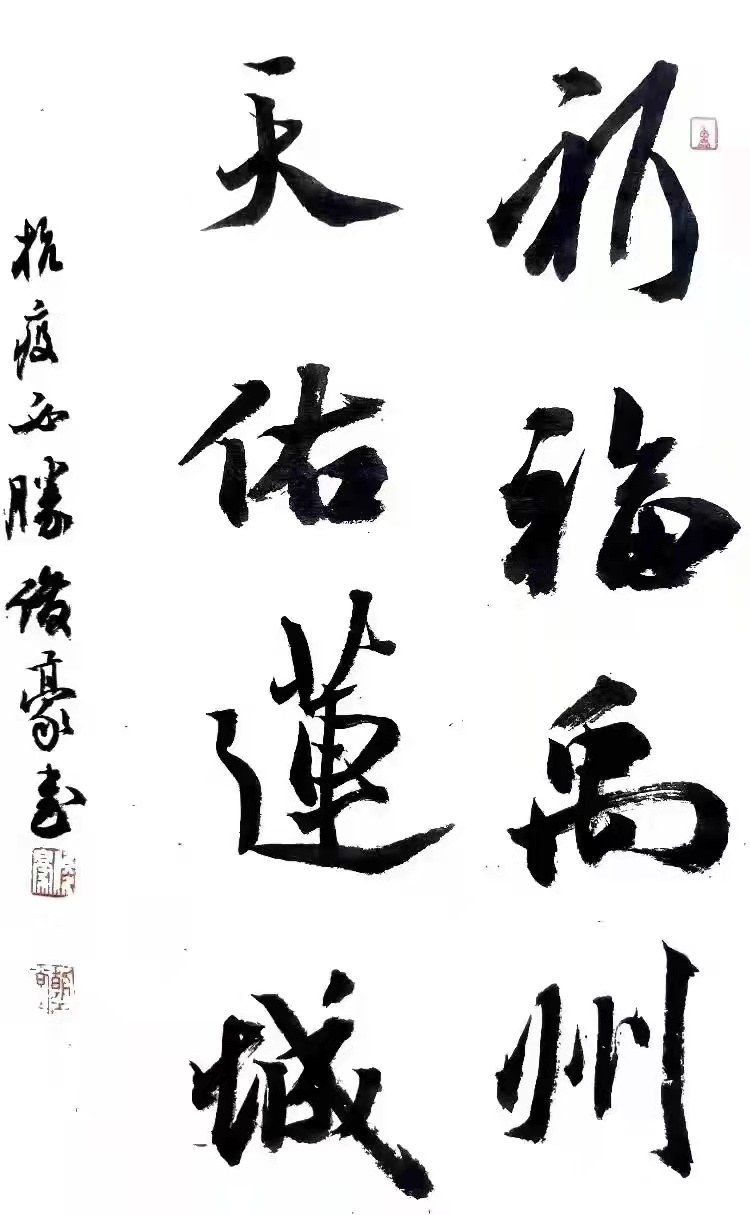 祈福禹州
天佑蓮城
抗疫必勝 俊豪书